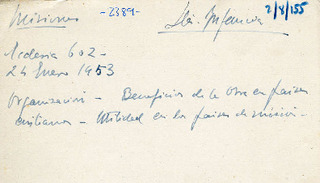 Misiones -2389- Sta. Infancia 2/8/155
Ecclesia 602-
24 Enero 1953
Organización - Beneficios de la Obra en países
cristianos - Utilidad en los países de misión -